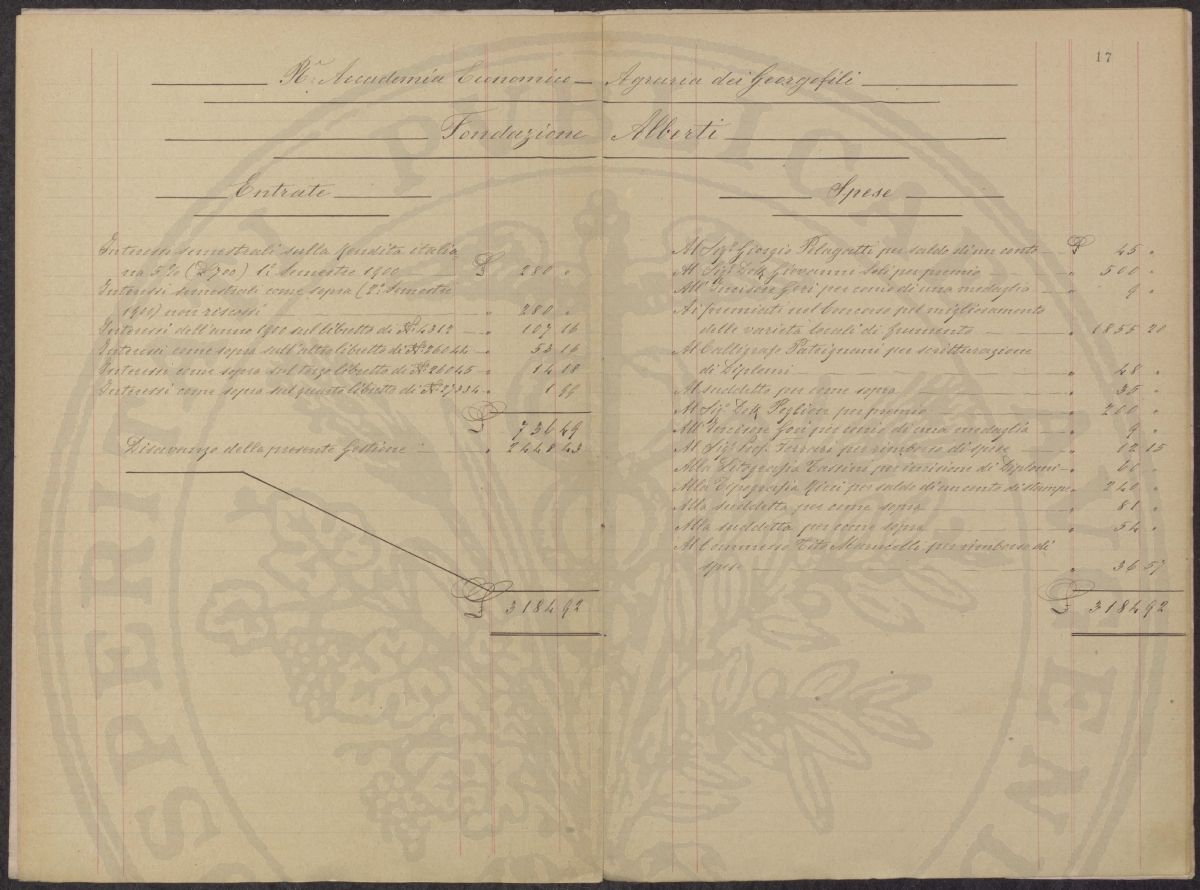 17
R.ª Accademia Economico Agraria dei Georgofili
Fondazione Alberti
Entrate
Interessi semestrali sulla rendita italia
na 5% (£ 700) 1º Semestre 1900 £ 280 "
Interessi semestrali come sopra (2º Semestre
1900) non riscossi " 280 "
Interessi dell'anno 1900 sul libretto di Nº 4312 " 107 16
Interessi come sopra sull'altro libretto di Nº 26044 " 53 16
Interessi come sopra sul terzo libretto di Nº 26045 " 14 18
Interessi come sopra sul quarto libretto di Nº 27334 " 1 99
£ 736 49
Disavanzo della presente Gestione " 2448 43
£ 3184 92
Spese
Al Sigr. Giorgio Pelagatti per saldo di un conto £ 45 "
Al Sigr. Dott. Giovanni Soli per premio " 500 "
All'Incisore Gori per conio di una medaglia " 9 "
Ai premiati nel Concorso pel miglioramento
delle varietà locali di frumento " 1855 20
Al Calligrafo Patrignani per scritturazione
di Diplomi " 48 "
Al suddetto per come sopra " 35 "
Al Sigr. Dott. Peglion per premio " 200 "
All'Incisore Gori per conio di una medaglia " 9 "
Al Sigr. Prof. Ferrari per rimborso di spese " 12 15
Alla Litografia Tassini per incisione di Diplomi " 60 "
Alla Tipografia Ricci per saldo di un conto di stampe " 240 "
Alla suddetta per come sopra " 81 "
Alla suddetta per come sopra " 54 "
Al Commesso Tito Marucelli per rimborso di
spese " 36 57
£ 3184 92